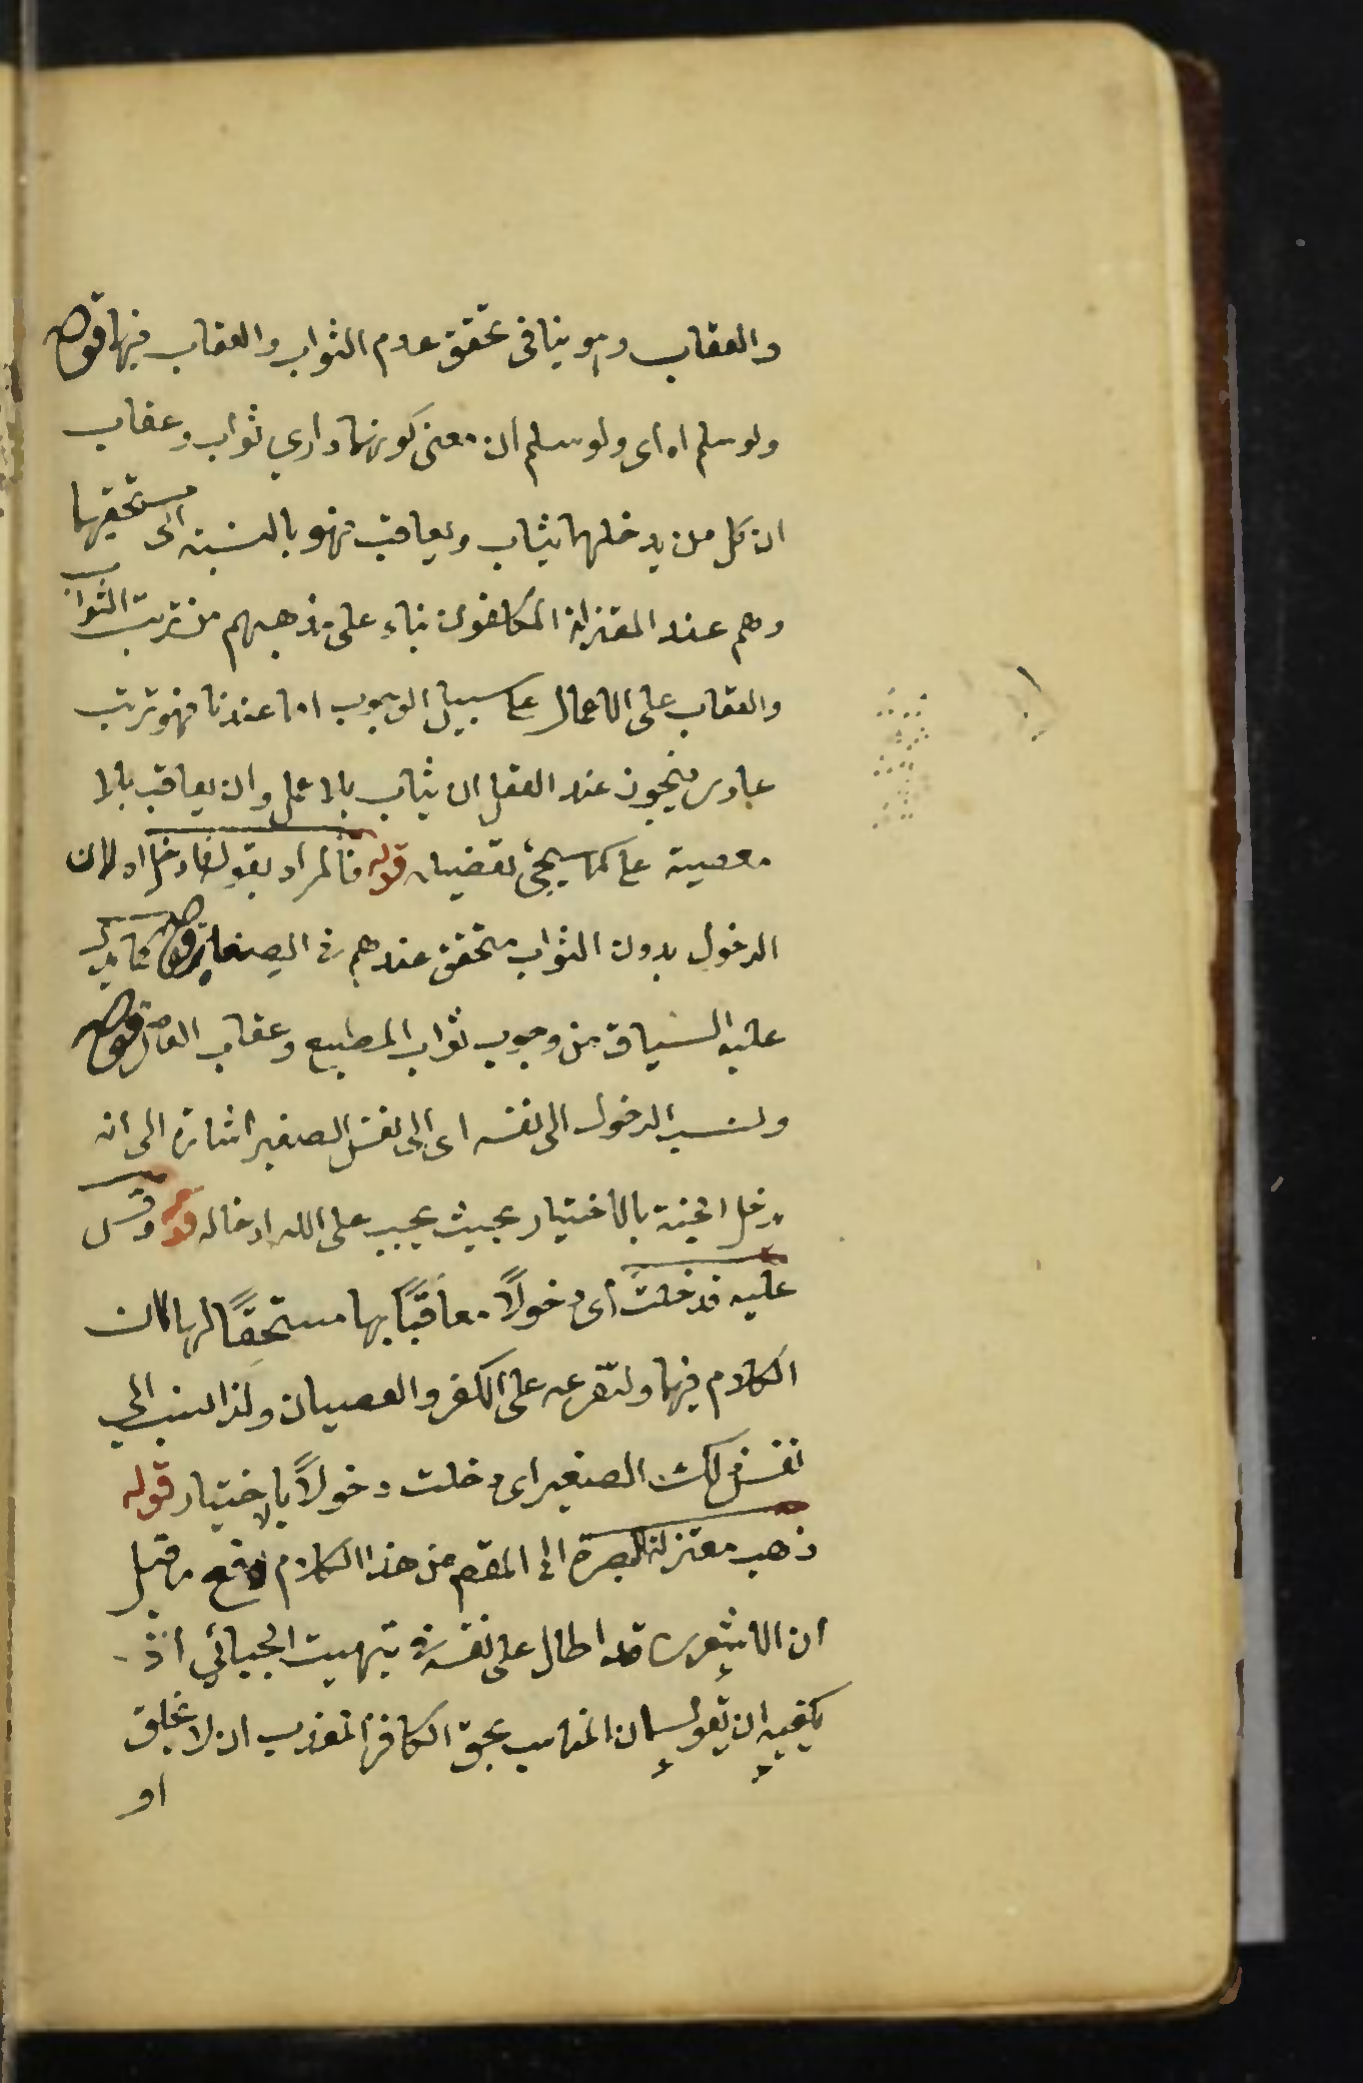 والعقاب وهو ينافى تحقق عدم الثواب والعقاب فيها قوله
ولو سلم اه اى ولو سلم ان معنى كونهما دارى ثواب وعقاب
ان كل من يدخلهما يثاب ويعاقب فهو بالنسبة الى مستحقيها
وهم عند المعتزلة المكلفون بناء على مذهبهم من ترتب الثواب
والعقاب على الاعمال على سبيل الوجوب اما عندنا فهو ترتب
عادى فيجوز عند العقل ان يثاب بلا عمل وان يعاقب بلا
معصية على كما سيجئ تفصيله قوله فالمراد بقوله فادخل اه لان
الدخول بدون الثواب متحقق عندهم فى الصغار قوله كما يدل
عليه السياق من وجوب ثواب المطيع وعقاب العاصى قوله
ونسب الدخول الى نفسه اى الى نفس الصغير اشارة الى انه
يدخل الجنة بالاختيار بحيث يجب على الله ادخاله قوله وقس
عليه فدخلت اى دخولًا معاقبًا بها مستحقًا لها لان
الكلام فيها ولتفرعه على الكفر والعصيان ولذا نسب الى
نفس ذلك الصغير اى دخلت دخولًا بالاختيار قوله
ذهب معتزلة البصرة الى المقصم من هذا الكلام دفع ما قيل
ان الاشعرى قد اطال على نفسه فى تبهيت الجبائي اذ
يكفيه ان يقول ان المناسب بحق الكافر المعذب ان لا يخلق
او